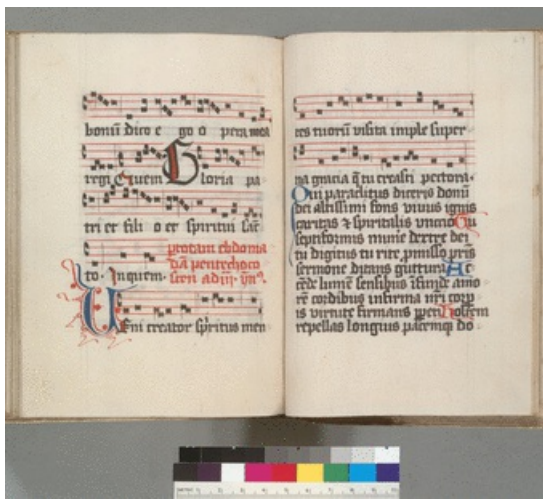 bonū dico e go o pera mea
regi Quem Gloria pa
tri et fili o et spiritui san
protani ebdoma
dā pentechoco
to. In quem.
sten ad iii. yn̄.
Ueni creator spiritus men
tes tuorū visita imple super
na gracia q̄ tu creasti pectora.
Qui paraclitus diceris donū
dei altissimi fons vivus ignis
caritas & spiritalis unctio Tu
septiformis mune dextre dei
tu digitus tu rite promisso pris
sermone ditans guttura Ac
cēde lumē sensibus īfunde amo
rē cordibus infirma nr̄i corp
is virtute firmans ppeti Hostem
repellas longius pacemq; do